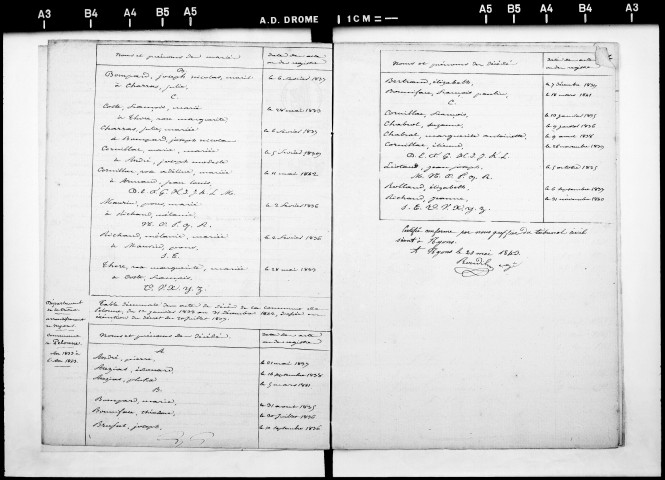 A3 B4 A4 B5 A5 A.D. DROME 1 CM = A5 B5 A4 B4 A3
Noms et prénoms des mariés
Date des actes ou des registres
B
Bompard, joseph nicolas, marié
à Charras, julie.
le 6 février 1837
C
Coste, francois, marié
à Thore, rose marguerite.
le 28 mai 1833
Charras, julie, mariée
à Bompard, joseph nicolas
le 6 février 1837
Cornillac, marie, mariée
à André, joseph modeste
Cornillac, rose adeline, mariée
à Armand, jean louis
le 11 mai 1842
D. E. F. G. H. I. J. K. L. M.
Maurin, pons, marié
à Richaud, mélanie
le 2 février 1836
N. O. P. Q. R.
Richaud, mélanie, mariée
à Maurin, pons.
le 2 février 1836
S. T.
Thore, rose marguerite, mariée
à Coste, francois.
le 28 mai 1833
U. V. X. Y. Z.
Département
de la Drôme
arrondissement
de Nyons
commune
de Pelonne.
Table décennale des actes de décès de la commune de
Pelonne, du 1er janvier 1833 au 31 décembre 1842, dressée en
exécution du décret du 20 juillet 1807.
Noms et prénoms des décédés
Date des actes ou des registres
A
André, pierre,
Augias, édouard
Augias,
le 5 mars 1841
B
Bompard, marie,
le 31 aout 1835
Bonnifare,
le 20 juillet 1836
joseph,
le 11 septembre 1836
Noms et prénoms des décédés
Date des actes ou des registres
Bertrand, élizabeth,
le 7 décembre 1839
Bonnifare, francois paulin,
le 18 mars 1841
C
Cornillac, francois,
le 10 janvier 1835
Chabrol, suzanne,
le 9 janvier 1836
Chabrol, marguerite antoinette,
le 9 aout 1838
Cornillac, étienne,
le 28 novembre 1839
D. E. F. G. H. I. J. K. L.
jean joseph,
le 5 octobre 1835
M. N. O. P. Q. R.
Rolland, élizabeth,
le 6 septembre 1837
Richard, jeanne,
le 21 novembre 1840
S. T. U. V. X. Y. Z.
Certifié conforme par nous greffier du tribunal civil
séant à Nyons.
A Nyons le 21 mai 1843.